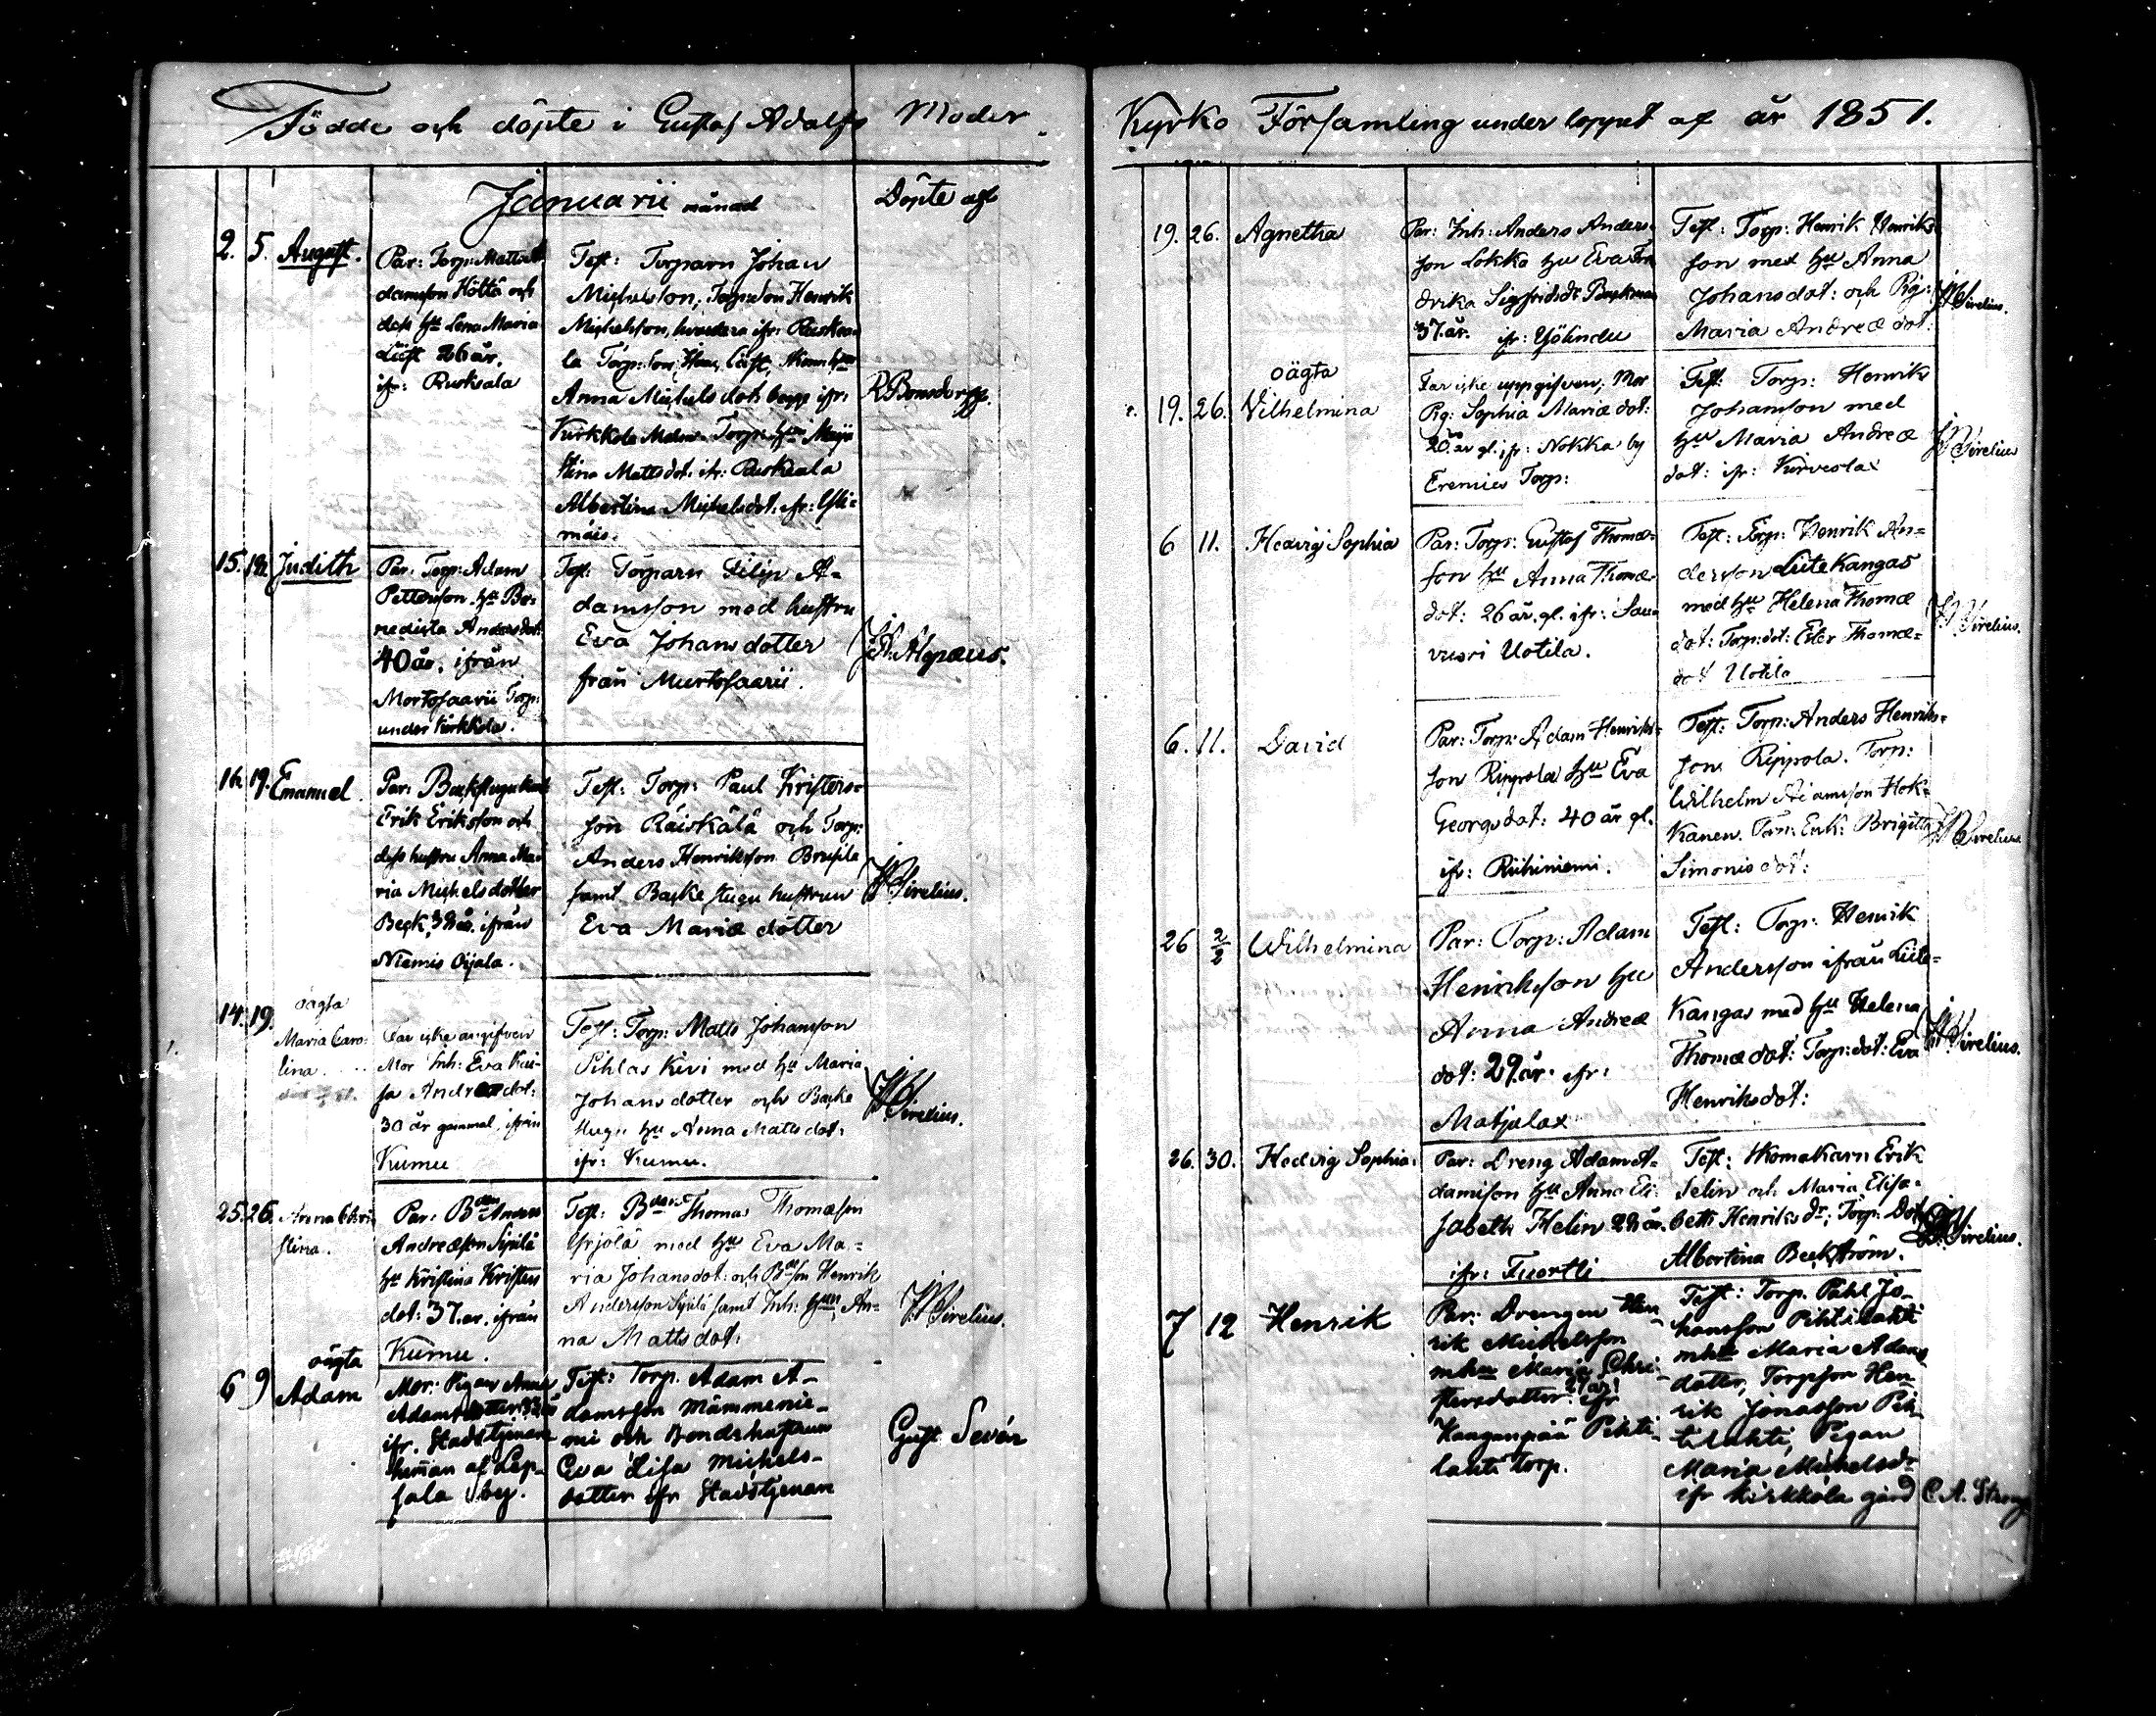 Födde och döpte i Gustaf Adolfs Moder
Januarii månad
Döpte af
2. 5. August.
Par: Torp: Matts A-
damsson Hölttä och
dess hu Lena Maria
Löfst 26 år.
ifr: Ruskeala
Test: Torparn Johan
Michelsson, Torpsson Henrik
Michelsson, ifr: Ruskea-
la Torp: son:
Anna Michels dotr ifr:
Kirkkola Torp: hu Maja
Stina Mattsdot: ifr: Ruskeala
Albertina Michelsdot: ifr:
mäis.
R Bonsdorff.
15. 19. Judith
Par: Torp: Adam
Pettersson hu Be-
nedicta Anders dot:
40 år. ifrån
Mortosaarii Torp:
under Kirkkola.
Test: Torparn Filip A-
damsson med hustru
Eva Johans dotter
från Murtosaarii.
Alopæus.
16. 19. Emanuel.
Par: Backstugukarl
Erik Eriksson och
dess hustru Anna Ma-
ria Michels dotter
Beck, 32 år. ifrån
Niemis Oijala.
Test: Torp: Paul Kristers-
son Räiskälä och Torp:
Anders Henriksson Brusila
samt Backe stugu hustrun
Eva Mariæ dotter
Sirelius.
14. 19. oägta
Maria Caro-
lina.
Far icke angifven
Mor Inh: Eva Kai-
sa Andreæ dot:
30 år gammal, ifrån
Kumu
Test: Torp: Matts Johansson
Pihlas Kivi med hu Maria
Johans dotter och Backe
stugu hu Anna Matts dot:
ifr: Kumu.
Sirelius.
25. 26. Anna Chri-
stina.
Par: Bden Anders
Andreæson Sipilä
hu Kristina Kristers
dot: 37. år. ifrån
Kumu.
Test: Bden Thomas Thomæson
Yrjölä med hu Eva Ma-
ria Johansdot: och Bdeson Henrik
Andersson Sipilä samt Inh: hun An-
na Matts dot:
Sirelius.
6 9 oägta
Adam
Mor: Pigan Anna
Adamsdotter 32 år
ifr. Stadstjenan
heman af Lep-
sala by.
Test: Torp. Adam A-
damsson Mämmenie-
mi och Bondehustrun
Eva Lisa Michels-
dotter ifr Stadstjenan
Gust Sevón
Kyrko Församling under loppet af år 1851.
19. 26. Agnetha
Par: Inh: Anders Anders-
son Lokka hu Eva Fre
drika Sigfridsdr Backman
37. år. ifr: Yöhndu
Test: Torp: Henrik Henriks-
son med hu Anna
Johansdot: och Pig:
Maria Andreæ dot:
Sirelius.
19. 26. oägta
Vilhelmina
Far icke uppgifven; Mor
Pig: Sophia Mariæ dot:
20. år gl. ifr: Nokka by
Eremies Torp:
Test: Torp: Henrik
Johansson med
hu Maria Andreæ
dot: ifr: Kirveslax
Sirelius
6 11. Hedvig Sophia
Par: Torp: Gustaf Thomæ-
son hu Anna Thomæ-
dot: 26 år. gl. ifr: Sau-
vuori Uotila.
Test: Torp: Henrik An-
dersson Liitekangas
med hu Helena Thomæ
dot: Torp: dot: Ester Thomæ-
dot Uotila
Sirelius.
6. 11. David
Par: Torp: Adam Henriks-
son Rippola hu Eva
Georgsdot: 40 år gl.
ifr: Riihiniemi.
Test: Torp: Anders Henriks-
son Rippola. Torp:
Wilhelm Adamsson Hok-
kanen. Torp: Enk: Brigitta
Simonis dot:
Sirelius
26 2/2 Wilhelmina
Par: Torp: Adam
Henriksson hu
Anna Andreæ
dot: 29. år. ifr:
Matjulax
Test: Torp: Henrik
Andersson ifrån Liite-
Kangas med hu Helena
Thomæ dot: Torp: dot: Eva
Henriksdot:
Sirelius.
26. 30. Hedvig Sophia.
Par: Dreng Adam A-
damsson hu Anna Eli-
sabeth Helin 22 år.
ifr: Tuortti
Test: Erik
Selin och Maria Elisa-
beth Henriks dr; Torp: Dot
Albertina Beckström.
Sirelius.
7 12 Henrik
Par: Drengen Hen
rik Michelsson
mhu Maria Chri-
stersdotter 27 år ifr
Kangaspää Pihti-
lahti torp.
Test: Torp. Påhl Jo-
hansson Pihtilahti
mhu Maria Adams
dotter, Torpson Hen-
rik Jonasson Pih-
tilahti, Pigan
Maria Michelsdr
ifr Kirkkola gård
C. A. Streng